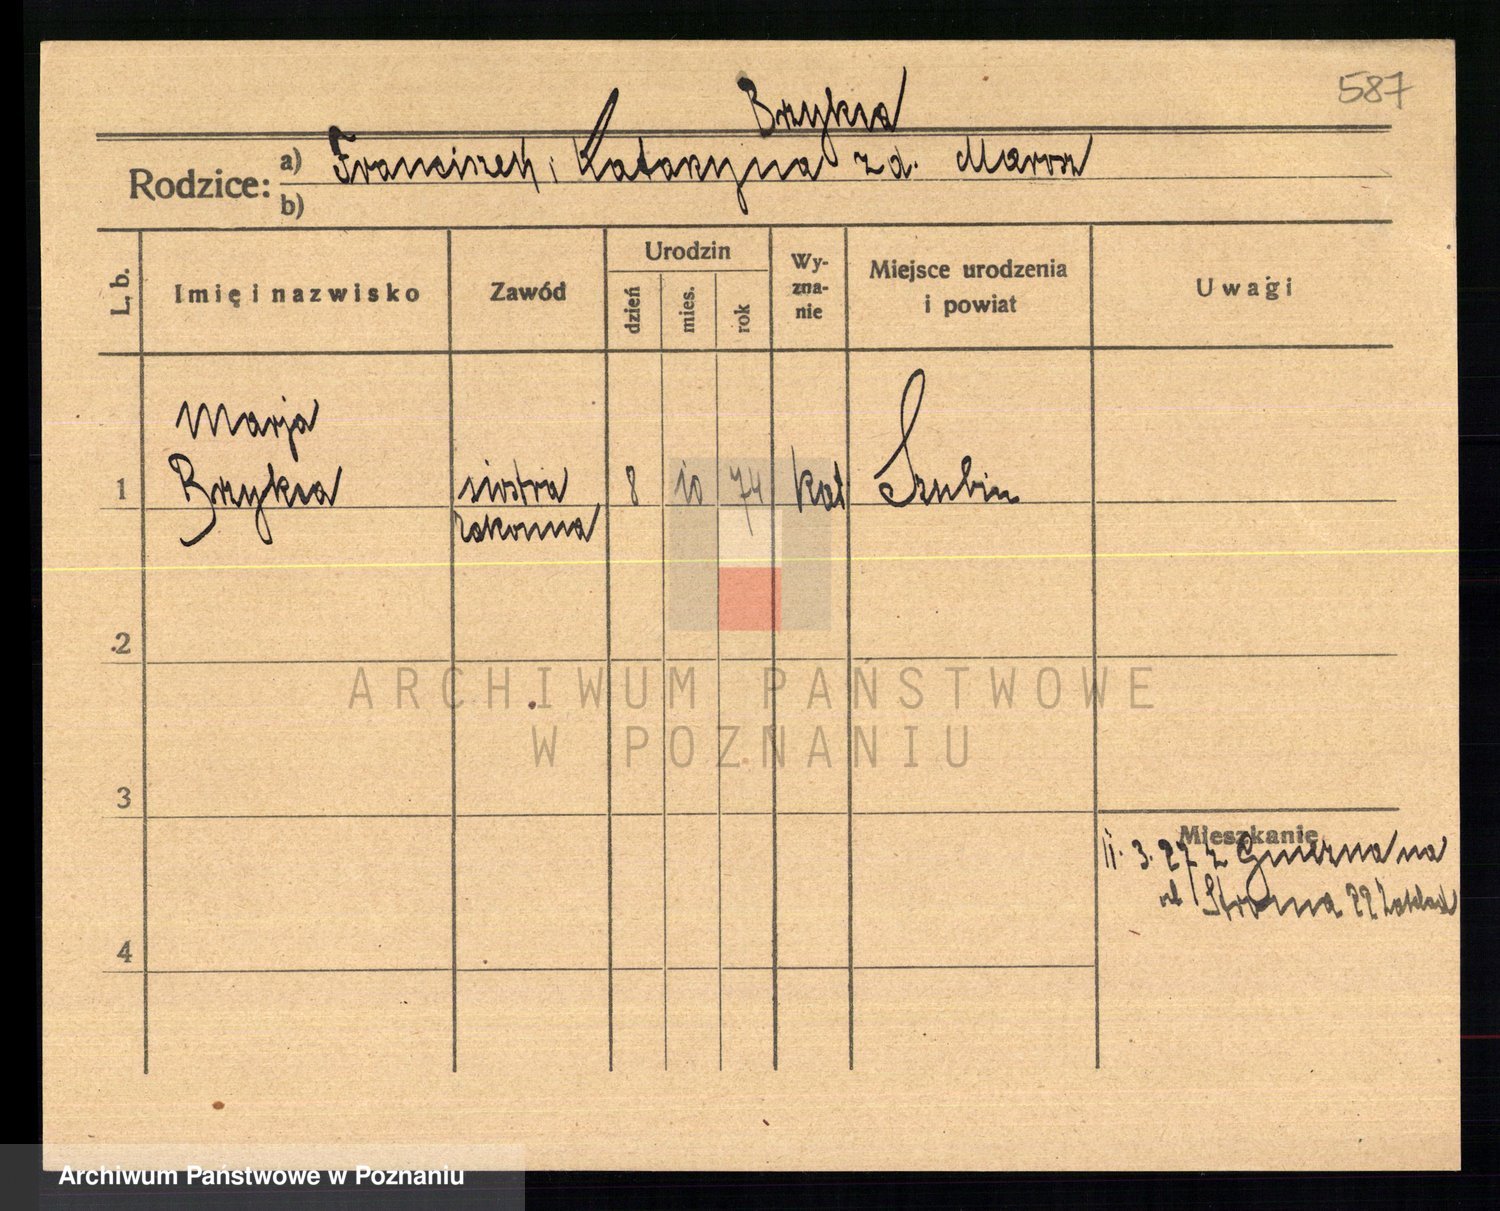 587
Brzykca
Rodzice: a) Franciszek i Katarzyna z d. Marosz
b)
L. b.
Imię i nazwisko
Zawód
Urodzin
dzień
mies.
rok
Wy-
zna-
nie
Miejsce urodzenia
i powiat
Uwagi
Marja
1 Brzykca siostra 8 10 74 kat Szubin
zakonna
2
ARCHIWUM PAŃSTWOWE
W POZNANIU
3
Mieszkanie
11. 3. 27 z Gniezna na
ul Stroma 22 Zakład
4
Archiwum Państwowe w Poznaniu